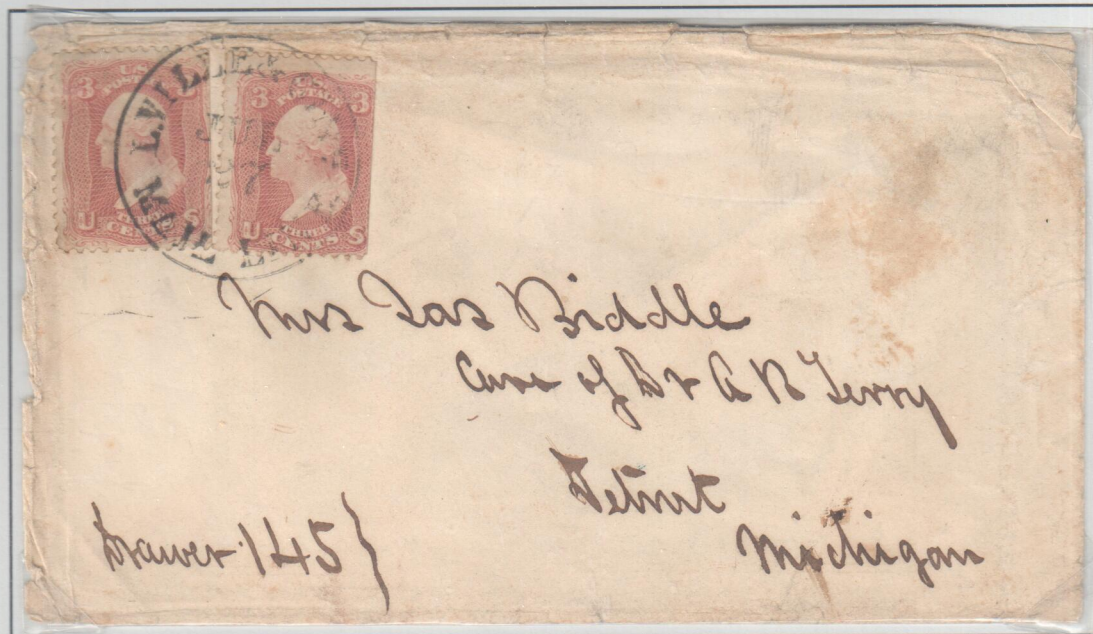 U.S. POSTAGE
3 3
U S
THREE CENTS
U.S. POSTAGE
3 3
U S
THREE CENTS
L.VILLE &
MAIL
Mrs Jas Biddle
Care of Dr A R Terry
Detroit
Michigan
Drawer 145